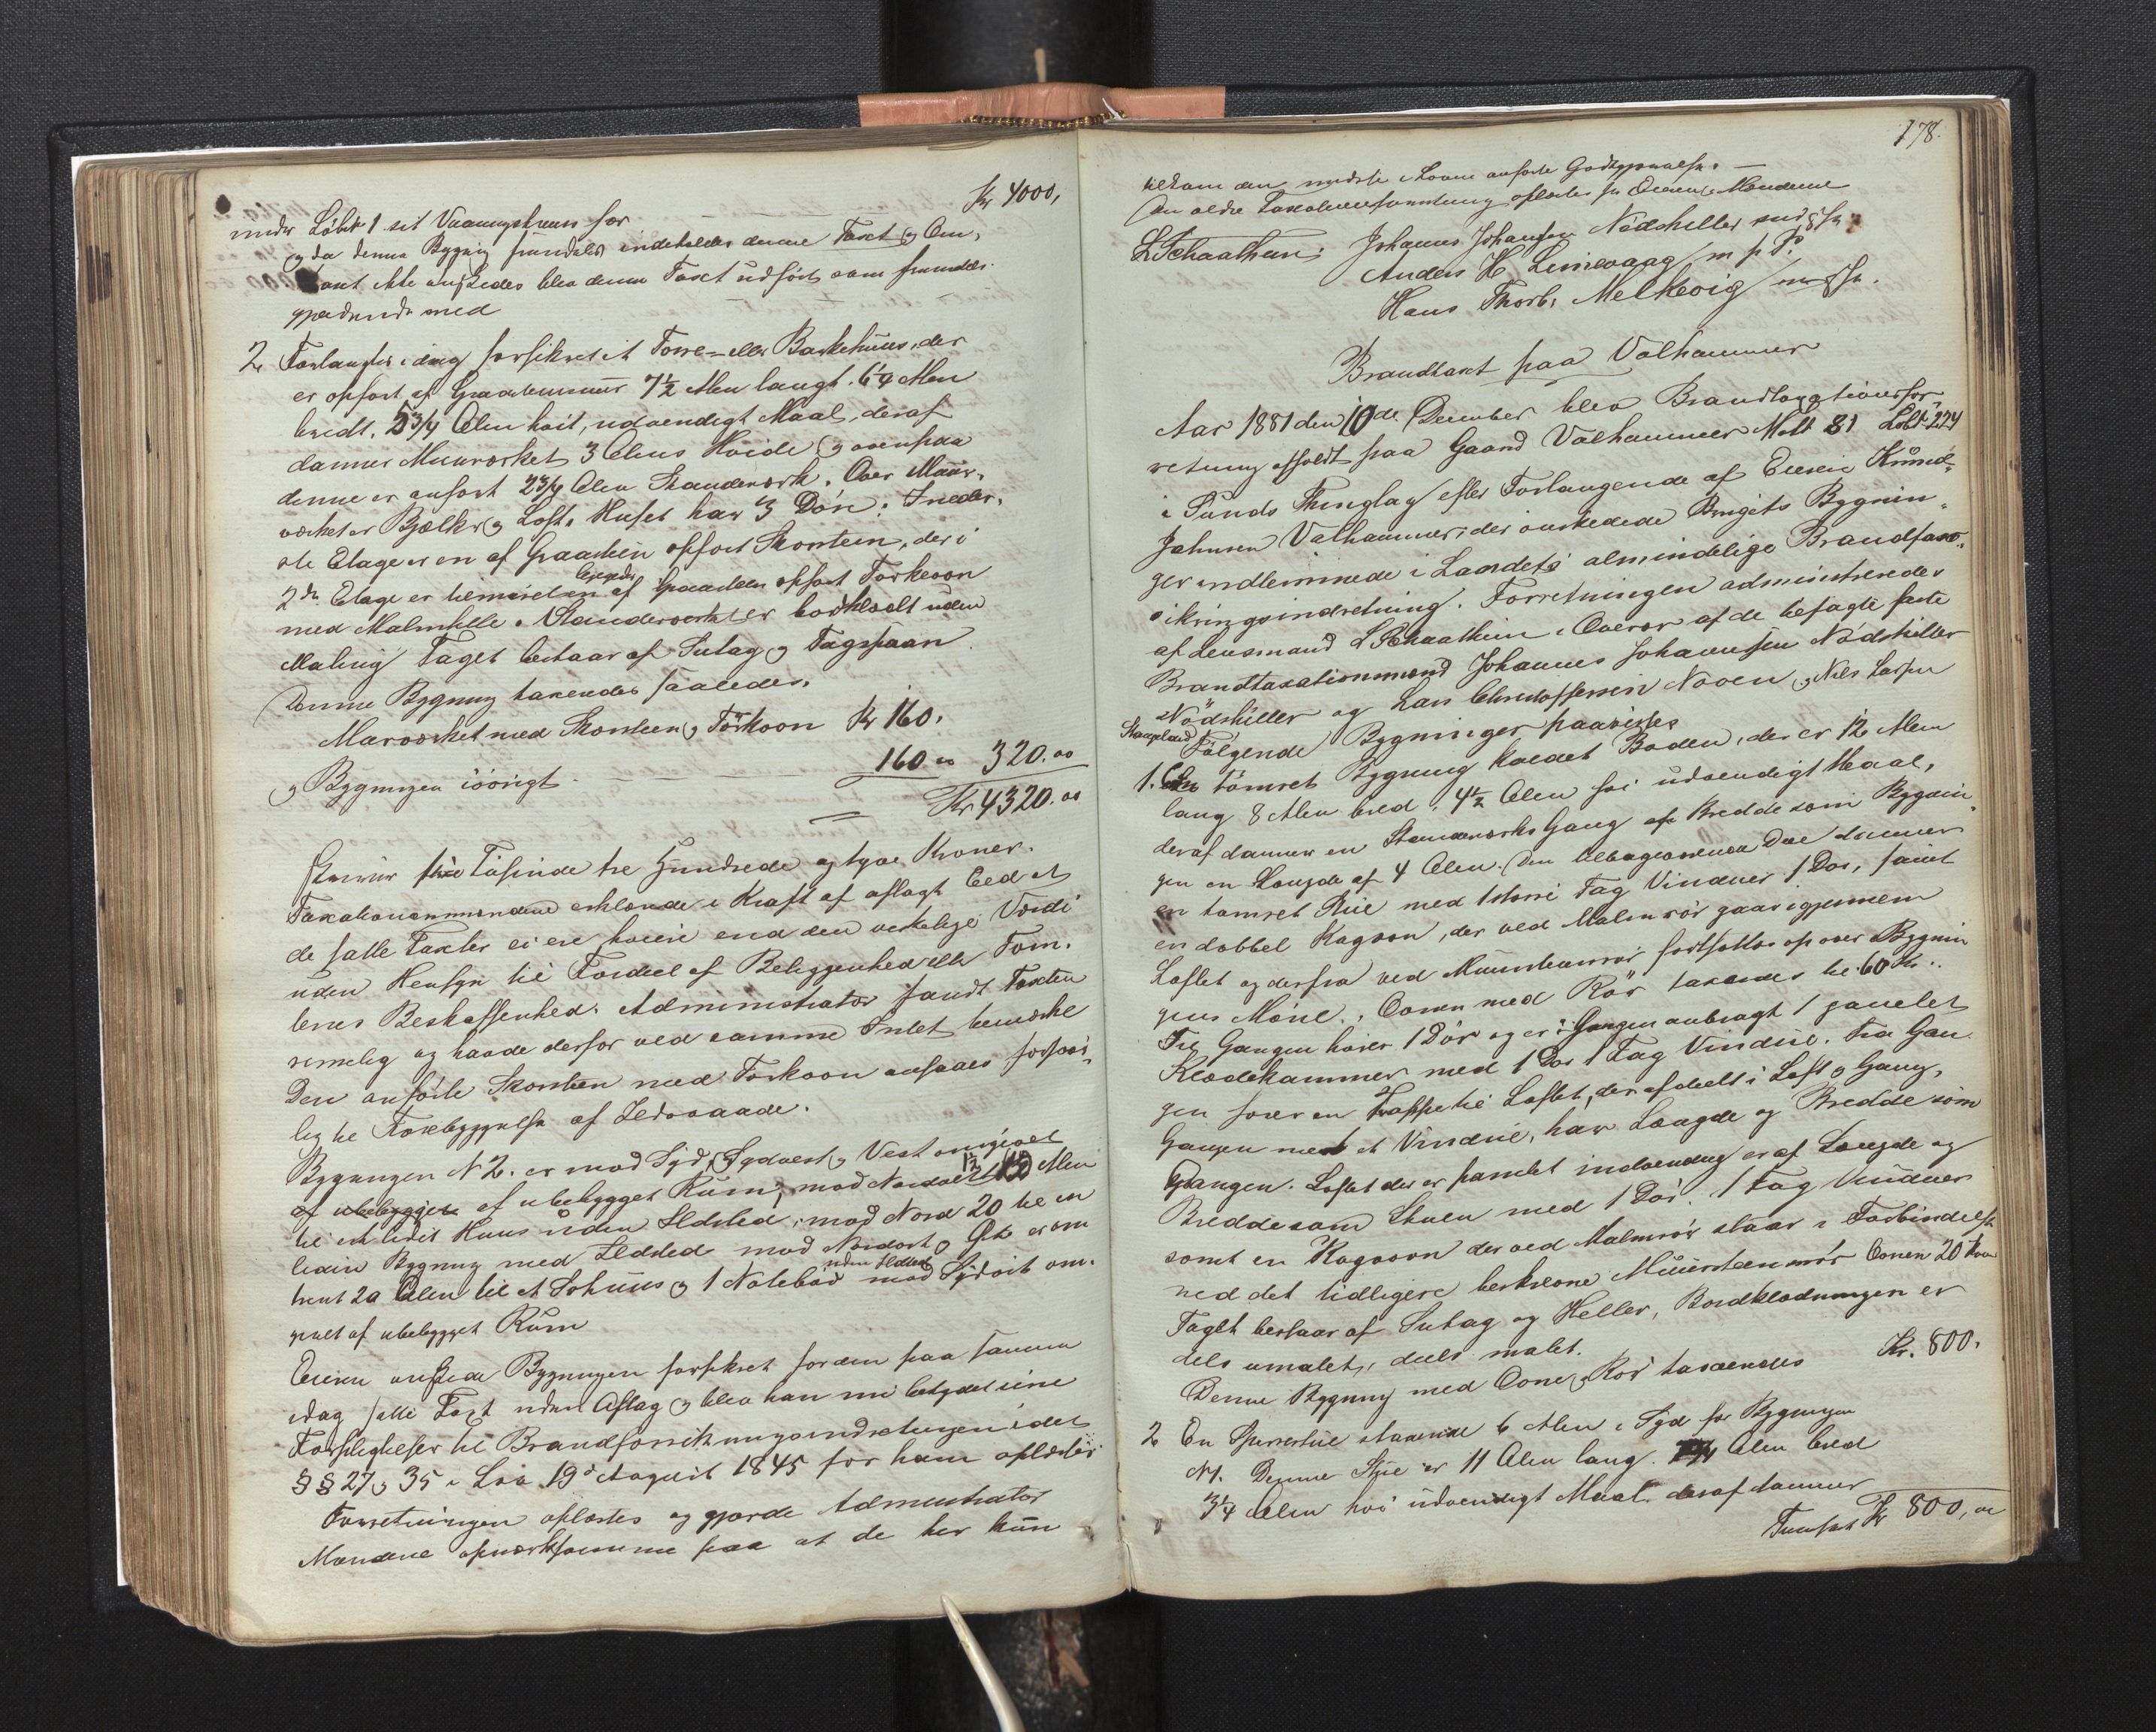 under Löbet 1 sit Vaaningshuus for Kr 4000,
og da denne Bygning fremdeles indeholder denne Taxt og Om-
taxt ikke anskedes blev denne Taxt udfört som fremdeles
gjeldende med
2 Forlangtes idag forsikret et Torre- eller Barkehuus, der
er opfört af Graasteensmuur 7½ Alen langt. 6¼ Alen
bredt, 5¾ Alen höit, udvendigt Maal, deraf
danner Muurværket 3 Alens Höide og ovenpaa
denne er anfört 2¾ Alen Standerværk. Over Muur-
værket er Bjælker og Loft. Huset har 3 Döre. I neder-
ste Etage er en af Graasteen opfört Skorsteen, der i
2den Etage er tilmuret en af Graasteen opfört Törkeovn
med Malmhelle. Standerværket er bordklædt uden
Maling Taget bestaar af Sutag og Tagspaan.
Denne Bygning taxeredes saaledes.
Murværket med Skorsteen og Törkovn Kr 160.
og Bygningen iövrigt 160 00 320.00
Kr 4320.00
Skriver fire Tusinde tre Hundrede og tyve Kroner.
Taxationsmændene erklærede i Kraft af aflagt Eed at
de satte Taxter ei ere höiere end den virkelige Værdi
uden Hensyn til Fordeel af Beliggenhed eller Tom-
tens Beskaffenhed. Administrator fandt Taxten
rimelig og havde derfor ved samme Intet bemærke
Den anförte Skorsteen med Törkovn ansaaes forsvar-
lig til Forebyggelse af Ildsvaade.
Bygningen N 2. er mod Syd, Sydvest og Vest omgivet
af ubebygget af ubebygget Rum, mod Nordvest 12 Alen
til et lidet Huus uden Ildsted, mod Nord 20 til en
liden Bygning med Ildsted mod Nordost og Öst er om
trent 20 Alen til et Sohuus og 1 Notebod uden Ildsted mod Sydost om-
givet af ubebygget Rum
Eieren anskede Bygningen forsikret for den paa samme
idag satte Taxt uden Aftag og blev han nu betydet sine
Forpligtelser til Brandforsikringsindretningen idet
§§ 27 og 35 i Lov 19de August 1845 for ham oplæstes
Forretningen oplæstes og gjorde Administrator
Mændene opmærksomme paa at de her kun
178.
tilkom den mindste i Loven anförte Godtgjörelse.
Den ældre Taxationsforretning oplæstes for Eieren og Mændene
L Schaathun Johannes Johansen Nödskiller
Anders H Linievaag m p P.
Hans Thorb. Melkevig
Brandtaxt paa Valhammer
Aar 1881 den 10de December blev Brandtaxationsfor-
retning afholdt paa Gaard Valhammer Matr 81 Löbe 224
i Sunds Thinglag efter Forlangende af Eieren Knud
Johnsen Valhammer, der önskede Brugets Bygnin-
ger indlemmede i Landets almindelige Brandforsi-
kringsindretning. Forretningen administreredes
af Lensmand L Schaathun i Overvær af de befagte faste
Brandtaxationsmænd Johannes Johannesen Nödskiller
Nödskiller og Lars Christoffersen Noven og Nils Larsen
Skaganland Fölgende Bygninger paavistes
1. En tömret Bygning kaldet Boden, der er 12 Alen
lang 8 Alen bred, 4½ Alen höi udvendigt Maal,
deraf danner en Standerværks Gang af Bredde som Bygnin-
gen en Længde af 4 Alen. Den tilbageværende Deel danner
en tömret Stue med 1 större Fag Vinduer 1 Dör, samt
en dobbel Kagovn, der ved Malmrör gaar igjennem
Loftet og derfra ved Muursteensrör fortsættes op over Bygnin
gens Möne. Ovnen med Rör taxeredes til 60 Kr.
Til Gangen hörer 1 Dör og er i Gangen anbragt 1 panelet
Klædekammer med 1 Dör 1 Fag Vindue. Fra Gan-
gen förer en Trappe til Loftet, der afdeelt i Loft og Gang,
Gangen med et Vindue, har Længde og Bredde som
Gangen. Loftet der er panelet indvendig er af Længde og
Bredde som Stuen med 1 Dör. 1 Fag Vinduer
samt en Kagovn der ved Malmrör staar i Forbindelse
med det tidligere beskrevne Muursteensrör Ovnen 20 Kroner
Taget bestaar af Sutag og Heller, Bordklædningen er
dels umalet, deels malet.
Denne Bygning med Ovne og Rör taxeredes Kr. 800.
2 En Sperrestue staaende 6 Alen i Syd for Bygningen
N 1. Denne Stue er 11 Alen lang. 7¼ Alen bred
3¼ Alen höi udvendigt Maal. deraf danner
Transport Kr 800,00